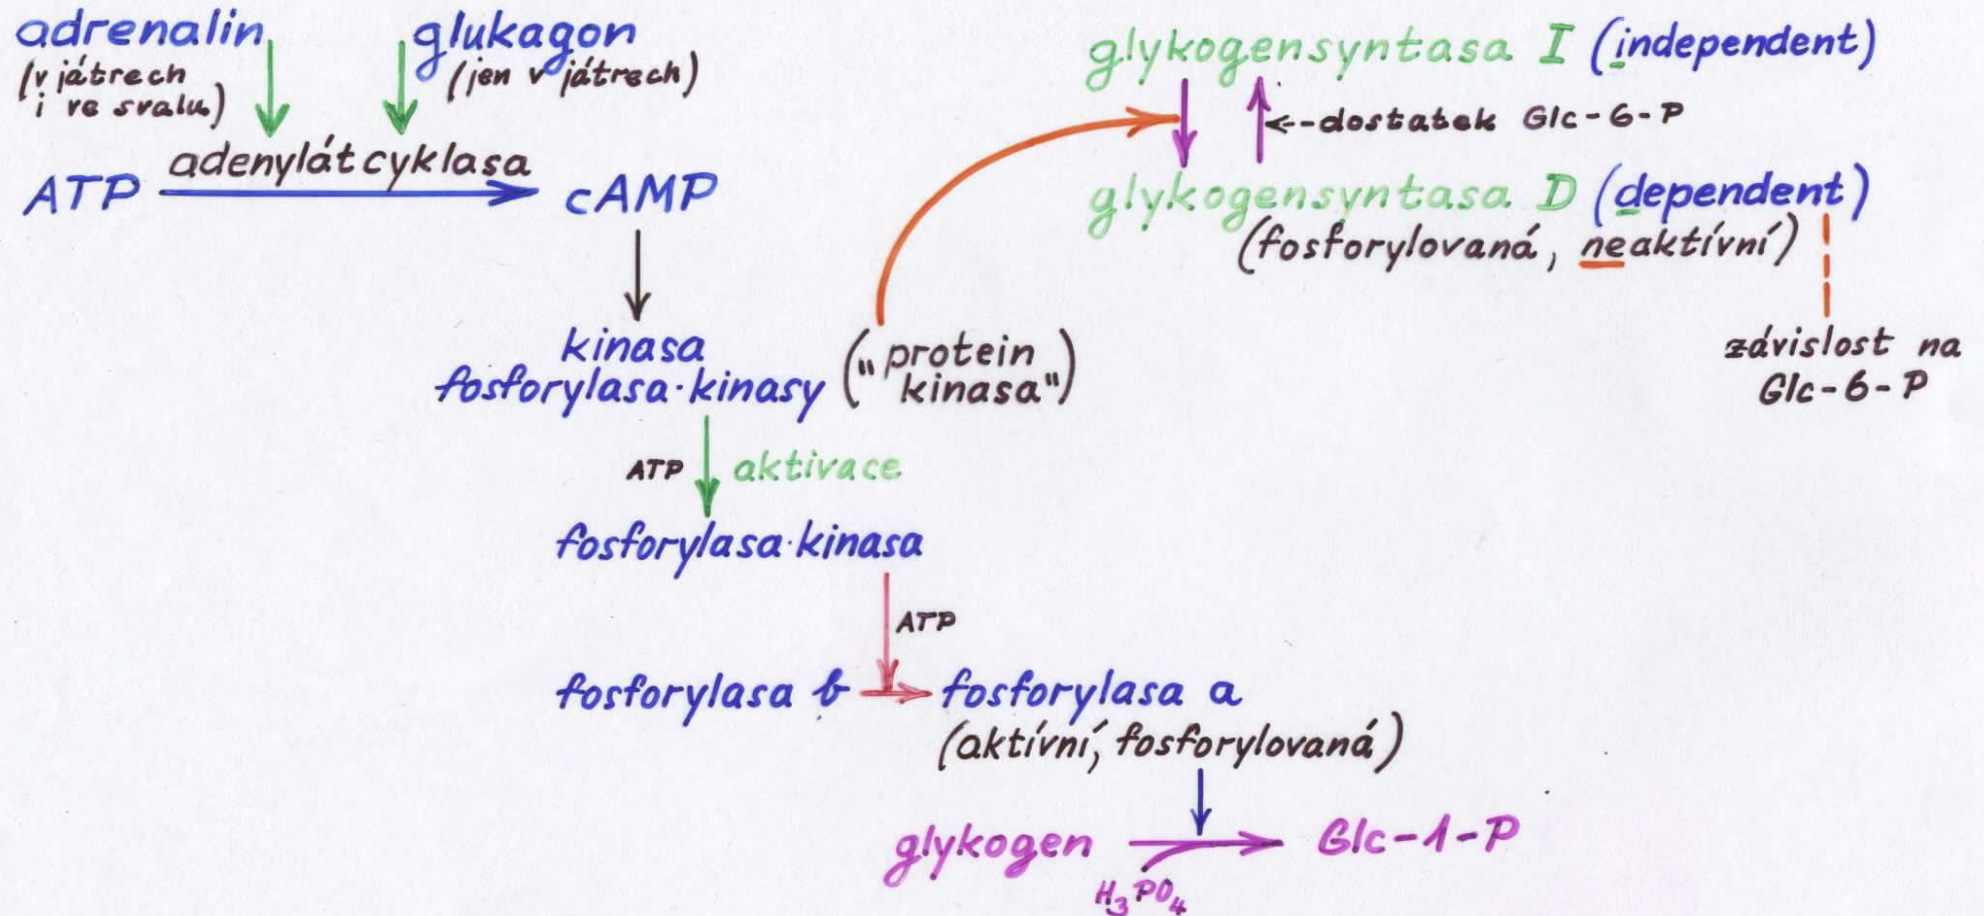 adrenalin
(v játrech
i ve svalu)
glukagon
(jen v játrech)
adenylátcyklasa
ATP
cAMP
kinasa
fosforylasa·kinasy
("protein
kinasa")
ATP
aktivace
fosforylasa·kinasa
ATP
fosforylasa b
fosforylasa a
(aktívní, fosforylovaná)
glykogen
Glc-1-P
H₃PO₄
glykogensyntasa I (independent)
←--dostatek Glc-6-P
glykogensyntasa D (dependent)
(fosforylovaná, neaktívní)
závislost na
Glc-6-P